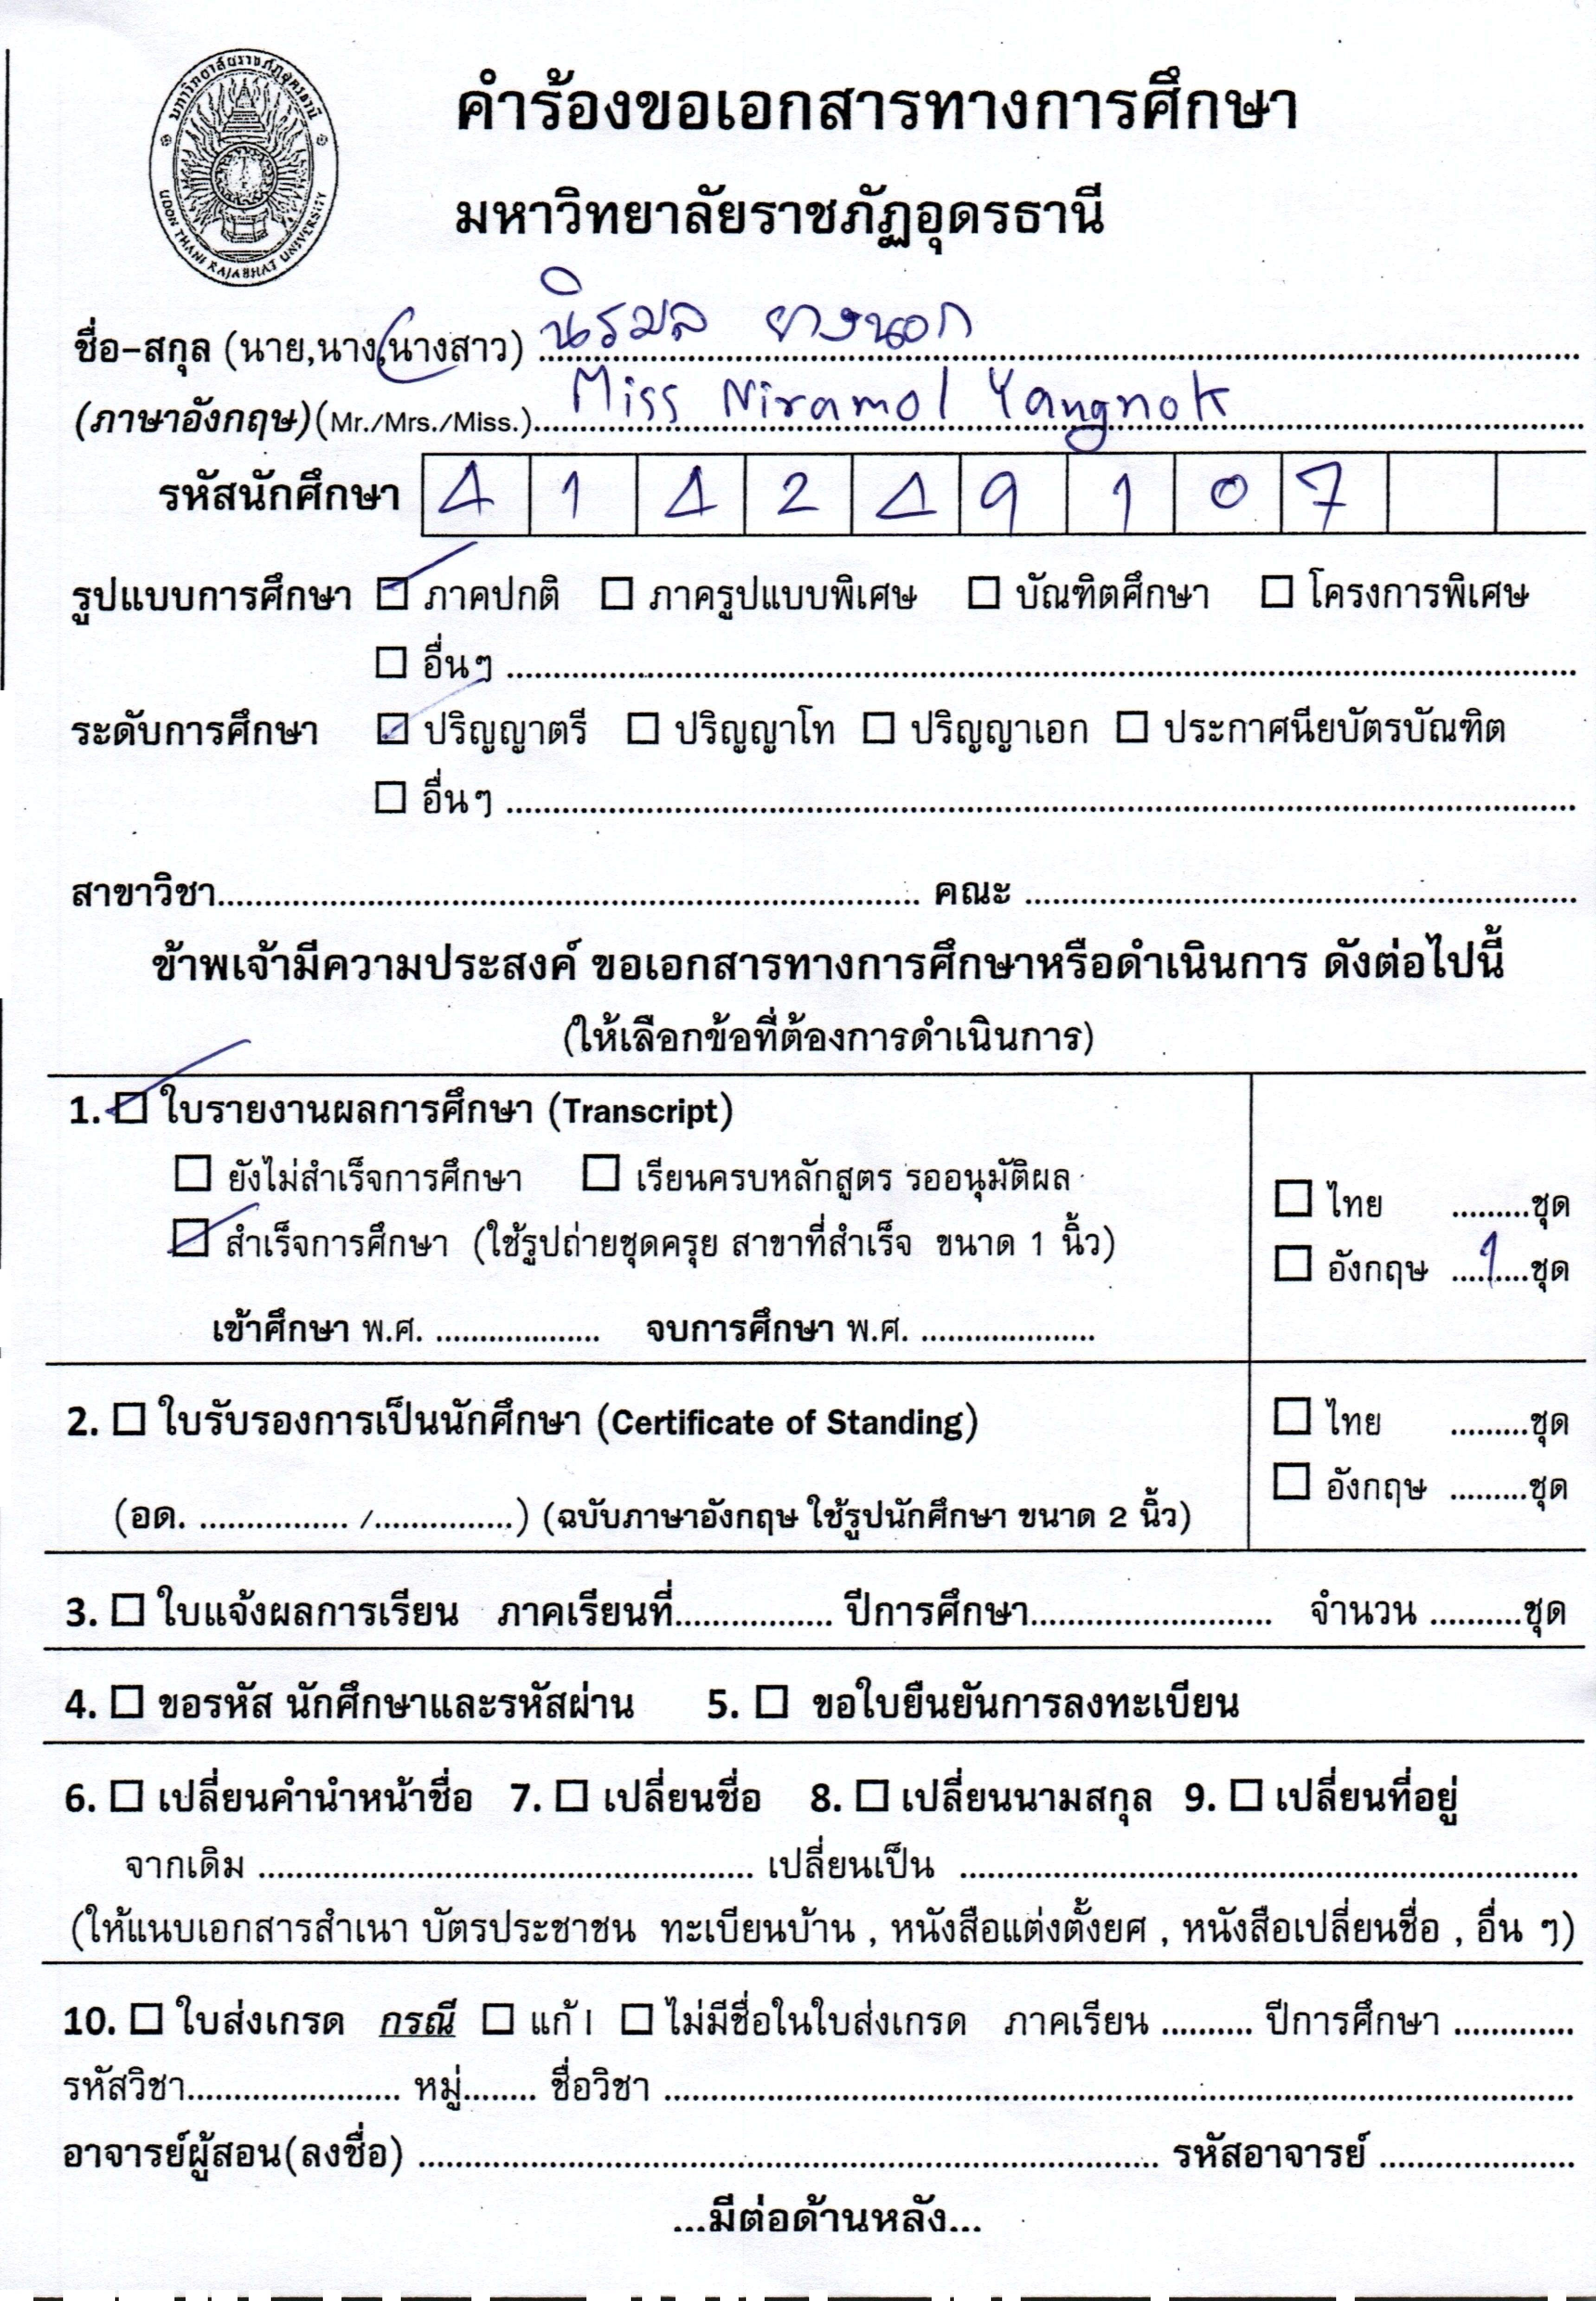 มหาวิทยาลัยราชภัฏอุดรธานี
UDON THANI RAJABHAT UNIVERSITY
คำร้องขอเอกสารทางการศึกษา
มหาวิทยาลัยราชภัฏอุดรธานี
ชื่อ-สกุล (นาย,นาง,นางสาว) นิรมล ยางนอก
(ภาษาอังกฤษ)(Mr./Mrs./Miss.) Miss Niramol Yangnok
รหัสนักศึกษา 4 1 4 2 4 9 1 0 7
รูปแบบการศึกษา ☑ ภาคปกติ ☐ ภาครูปแบบพิเศษ ☐ บัณฑิตศึกษา ☐ โครงการพิเศษ
☐ อื่นๆ ........................................
ระดับการศึกษา ☑ ปริญญาตรี ☐ ปริญญาโท ☐ ปริญญาเอก ☐ ประกาศนียบัตรบัณฑิต
☐ อื่นๆ ........................................
สาขาวิชา........................................ คณะ ........................................
ข้าพเจ้ามีความประสงค์ ขอเอกสารทางการศึกษาหรือดำเนินการ ดังต่อไปนี้
(ให้เลือกข้อที่ต้องการดำเนินการ)
1. ☑ ใบรายงานผลการศึกษา (Transcript)
☐ ยังไม่สำเร็จการศึกษา ☐ เรียนครบหลักสูตร รออนุมัติผล
☐ ไทย .........ชุด
☑ สำเร็จการศึกษา (ใช้รูปถ่ายชุดครุย สาขาที่สำเร็จ ขนาด 1 นิ้ว)
☐ อังกฤษ ....1....ชุด
เข้าศึกษา พ.ศ. ................... จบการศึกษา พ.ศ. ....................
2. ☐ ใบรับรองการเป็นนักศึกษา (Certificate of Standing)
☐ ไทย .........ชุด
☐ อังกฤษ .........ชุด
(อด. ................. /................) (ฉบับภาษาอังกฤษ ใช้รูปนักศึกษา ขนาด 2 นิ้ว)
3. ☐ ใบแจ้งผลการเรียน ภาคเรียนที่.................. ปีการศึกษา............................ จำนวน ..........ชุด
4. ☐ ขอรหัส นักศึกษาและรหัสผ่าน 5. ☐ ขอใบยืนยันการลงทะเบียน
6. ☐ เปลี่ยนคำนำหน้าชื่อ 7. ☐ เปลี่ยนชื่อ 8. ☐ เปลี่ยนนามสกุล 9. ☐ เปลี่ยนที่อยู่
จากเดิม ........................................ เปลี่ยนเป็น ........................................
(ให้แนบเอกสารสำเนา บัตรประชาชน ทะเบียนบ้าน , หนังสือแต่งตั้งยศ , หนังสือเปลี่ยนชื่อ , อื่น ๆ)
10. ☐ ใบส่งเกรด กรณี ☐ แก้ I ☐ ไม่มีชื่อในใบส่งเกรด ภาคเรียน .......... ปีการศึกษา ..............
รหัสวิชา........................ หมู่........ ชื่อวิชา ........................................
อาจารย์ผู้สอน(ลงชื่อ) ........................................ รหัสอาจารย์ ......................
...มีต่อด้านหลัง...